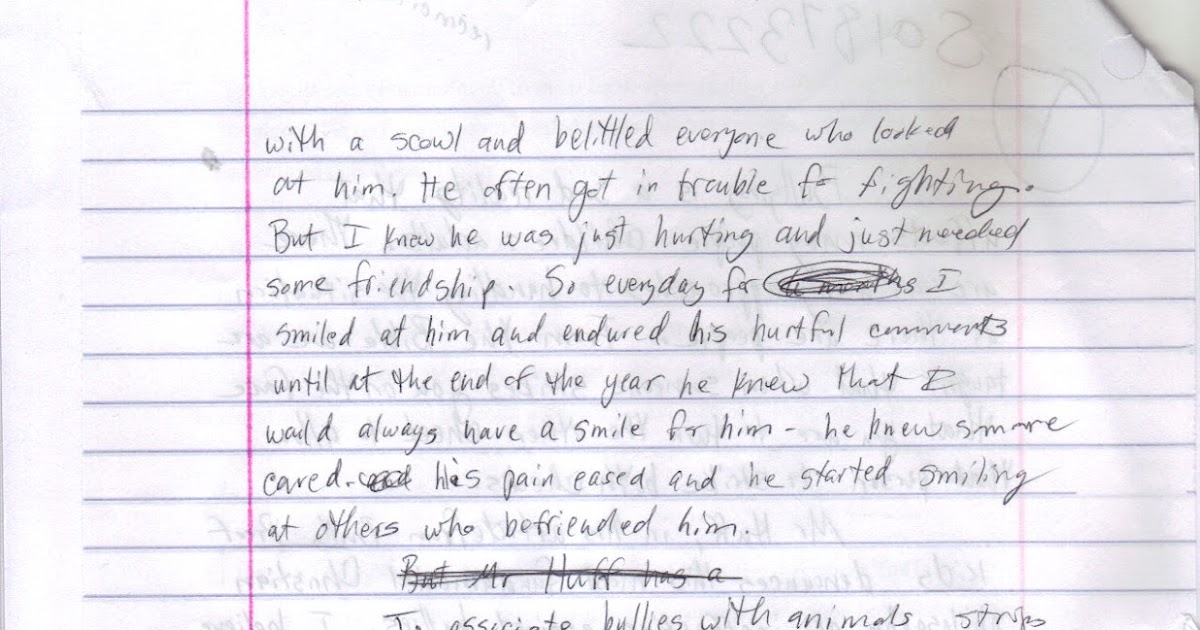 with a scowl and belittled everyone who looked
at him. He often got in trouble for fighting.
But I knew he was just hurting and just needed
some friendship. So everyday for I
smiled at him and endured his hurtful comments
until at the end of the year he knew that I
would always have a smile for him - he knew someone
cared. his pain eased and he started smiling
at others who befriended him.
But Mr Huff has a
To associate bullies with animals strips